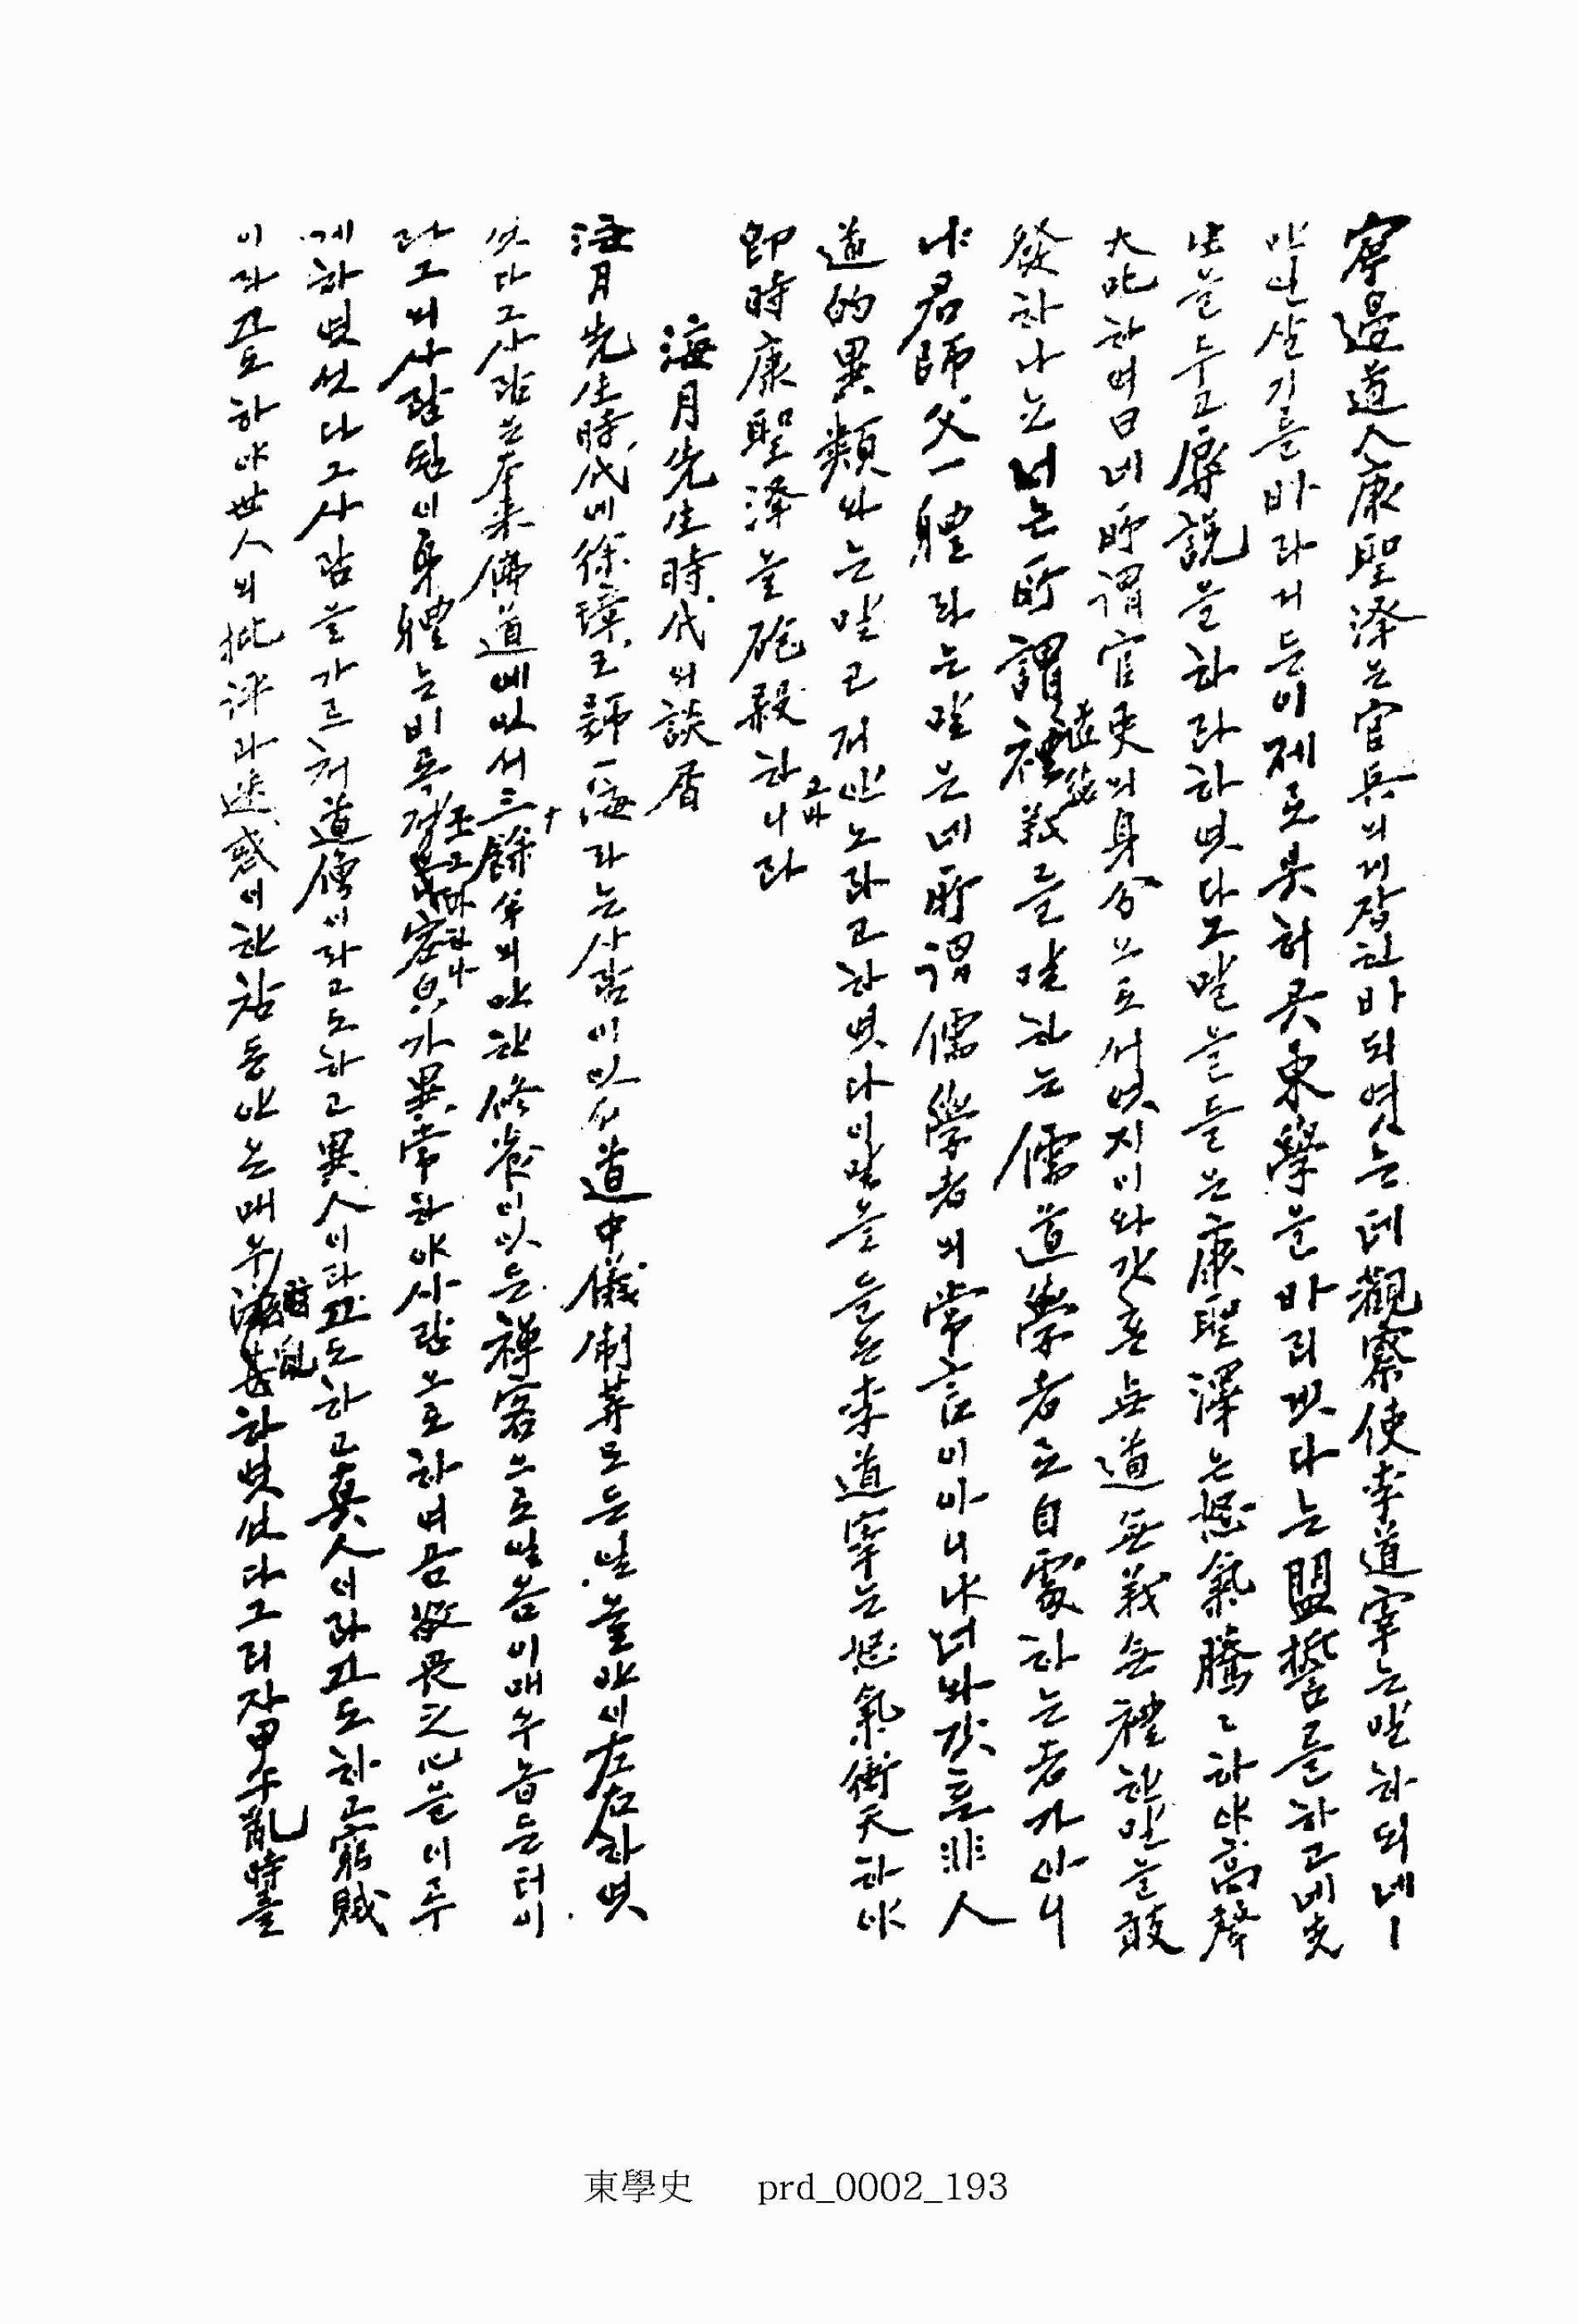 寧邊道人康聖澤은官兵의게잡힌바되엿는데觀察使李道宰는말하되네ㅣ
만일살기를바라거든이제로곳허곳東學을바리겟다는盟誓를하고네先
生을두고辱說을하라하엿다그말을들은康聖澤은怒氣騰騰하야高聲
大叱하여曰네所謂官吏의身分으로서엇지이와갓흔無道無義無禮한말을敢
發하나뇨너는所謂禮義를말하는儒道學者로自處하는者가아니
냐君師父一體라는말은네所謂儒學者의常言이아니냐너와갓흔非人
道的異類와는말코저안노라고하엿다이말을들은李道宰는怒氣衝天하야
卽時康聖澤을砲殺하니라
海月先生時代의談屑
海月先生時代에徐璋玉號一海라는사람이잇서道中儀制等모든일을만이左右하엿
섯다그사람은本來佛道에잇서三十餘年의만한修養이잇는禪客으로일홈이매우놉든터이
라그의사람된이身體는비록적으나容貌가異常하야사람으로하여금敬畏之心을이루
게하엿섯다그사람을가르처道僧이라고도하고異人이라고도하고眞人이라고도하고窮賊
이라고도하야世人의批評과迷惑이한참동안은매우混亂하엿섯다그리자甲午亂時를